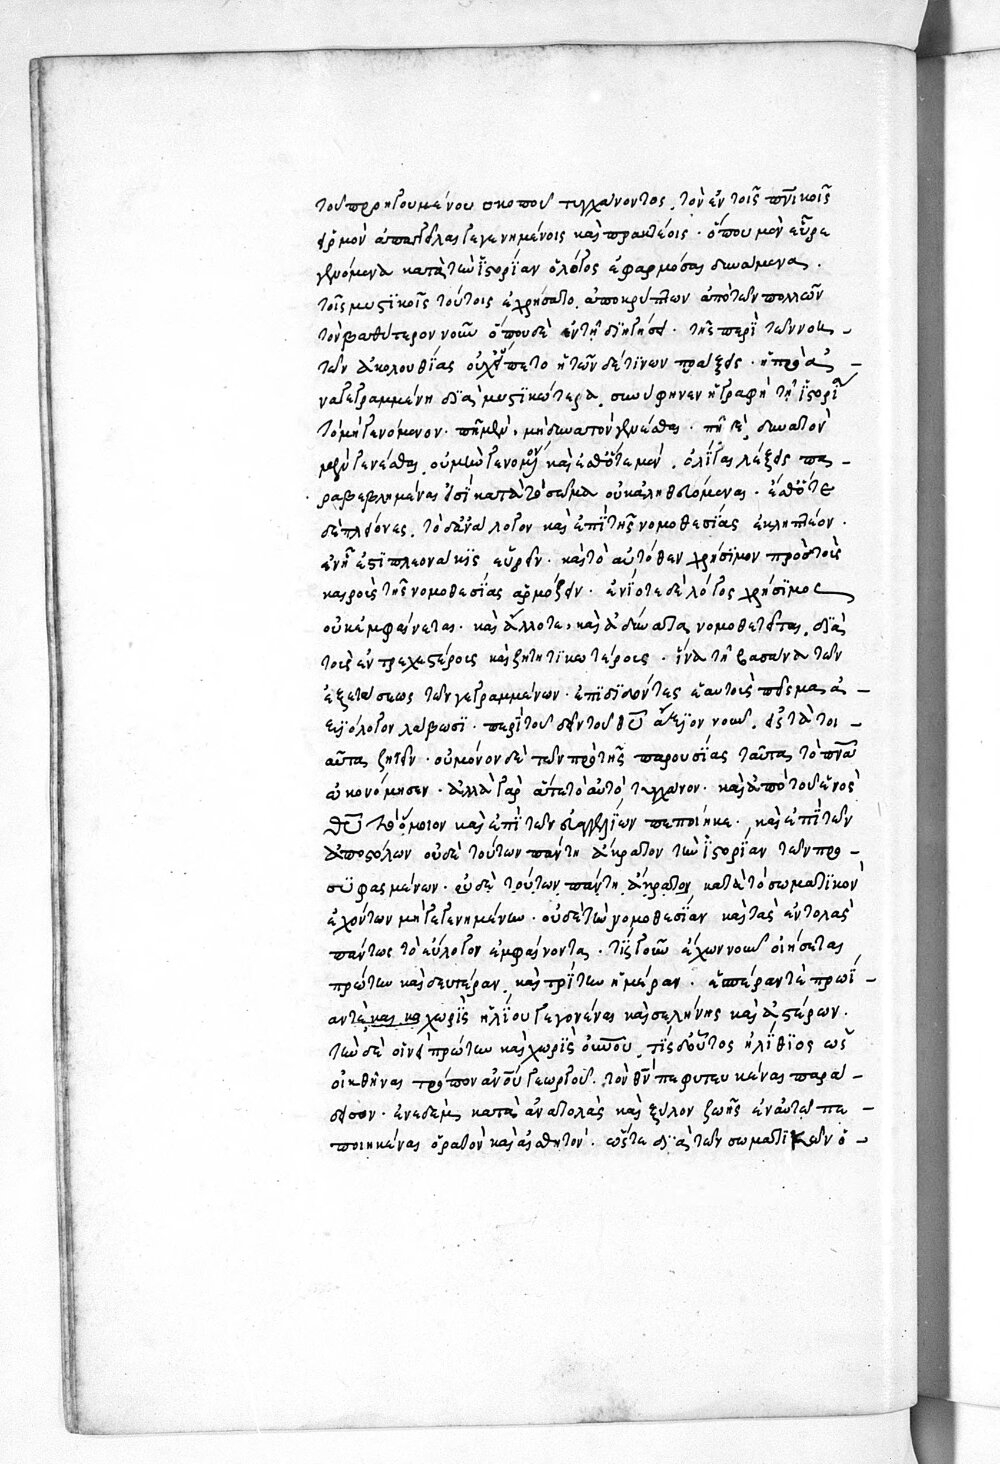 τοῦ προηγουμένου σκοποῦ τυγχάνοντος, τὸν ἐν τοῖς πνικοῖς
εἱρμὸν ἀπαγγεῖλαι γεγενημένοις καὶ πρακτέοις· ὅπου μὲν εὗρε
γενόμενα κατὰ τὴν ἱστορίαν ὁ λόγος ἐφαρμόσαι δυνάμενα,
τοῖς μυστικοῖς τούτοις ἐχρήσατο, ἀποκρύπτων ἀπὸ τῶν πολλῶν
τὸν βαθύτερον νοῦν· ὅπου δὲ ἐν τῇ διηγήσει τῆς περὶ τῶν νοη-
τῶν ἀκολουθίας οὐχ εἵπετο ἡ τῶν δέ τινων πρᾶξις, ἡ προα-
ναγεγραμμένη διὰ μυστικώτερα, συνύφηνεν ἡ γραφὴ τῇ ἱστορίᾳ
τὸ μὴ γενόμενον· πῆ μὲν, μὴ δυνατὸν γενέσθαι· πῆ δὲ, δυνατὸν
μὲν γενέσθαι, οὐ μὴν γενομεν· καὶ ἔσθ' ὅτε μὲν, ὀλίγαι λέξεις πα-
ραβεβλημέναι εἰσὶ κατὰ τὸ σῶμα οὐκ ἀληθευόμεναι· ἔσθ' ὅτε
δὲ πλείονες. τὸ δ' ἀνάλογον καὶ ἐπὶ τῆς νομοθεσίας ἐκληπτέον·
ἐν ᾗ ἔστι πλεονάκις εὑρεῖν· καὶ τὸ αὐτόθεν χρήσιμον πρὸς τοὺς
καιροὺς τῆς νομοθεσίας ἁρμόζειν· ἐνίοτε δὲ λόγος χρήσιμος
οὐκ ἐμφαίνεται· καὶ ἄλλοτε, καὶ ἀδύνατα νομοθετεῖται, διὰ
τοὺς ἐντρεχεστέρους καὶ ζητητικωτέρους· ἵνα τῇ βασάνῳ τῶν
ἐξετάσεως τῶν γεγραμμένων ἐπιδιδόντες ἑαυτοὺς πεῖσμα ἀ-
ξιόλογον λάβωσι· περὶ τοῦ δεῖν τοῦ θυ ἄξιον νοῦν, εἰς τὰ τοι-
αῦτα ζητεῖν· οὐ μόνον δὲ τῶν πρὸ τῆς παρουσίας ταῦτα τὸ πνα
ᾠκονόμησεν· ἀλλὰ γὰρ ἅτε τὸ αὐτὸ τυγχάνον· καὶ ἀπὸ τοῦ ἑνὸς
θυ τὸ ὅμοιον καὶ ἐπὶ τῶν εὐαγγελίων πεποίηκε· καὶ ἐπὶ τῶν
ἀποστόλων οὐδὲ τούτων πάντη ἄκρατον τὴν ἱστορίαν τῶν προ-
συφασμένων· οὐδὲ τούτων πάντη ἄκρατον κατὰ τὸ σωματικὸν
ἐχόντων μὴ γεγενημένων· οὐδὲ τὴν νομοθεσίαν καὶ τὰς ἐντολὰς
πάντως τὸ εὔλογον ἐμφαίνοντα. τίς γοῦν ἔχων νοῦν οἰήσεται
πρώτην καὶ δευτέραν, καὶ τρίτην ἡμέραν, ἑσπέραν τὲ πρωΐ-
αν τὲ και κα χωρὶς ἡλίου γεγονέναι καὶ σελήνης καὶ ἀστέρων·
τὴν δὲ οἱονεὶ πρώτην καὶ χωρὶς οὐνου, τίς δ' οὕτως ἠλίθιος ὡς
οἰηθῆναι τρόπον ἀνου γεωργοῦ, τὸν θν πεφυτευκέναι παρά-
δεισον· ἐν ἐδὲμ κατὰ ἀνατολὰς καὶ ξύλον ζωῆς ἐν αὐτῷ πε-
ποιηκέναι ὁρατὸν καὶ αἰσθητόν· ὥστε διὰ τῶν σωματικῶν ὀ-